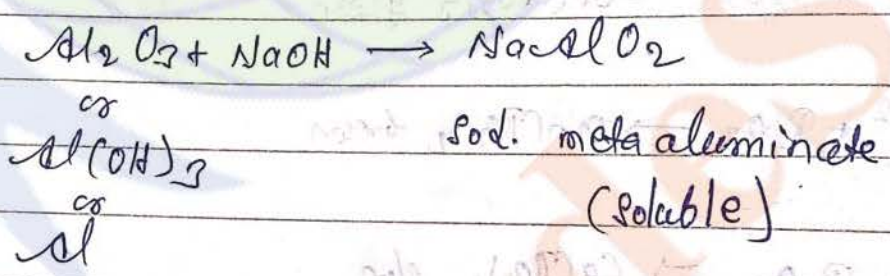 Al2O3 + NaOH ⟶ NaAlO2
or
Al(OH)3
sod. meta aluminate
(soluble)
or
Al